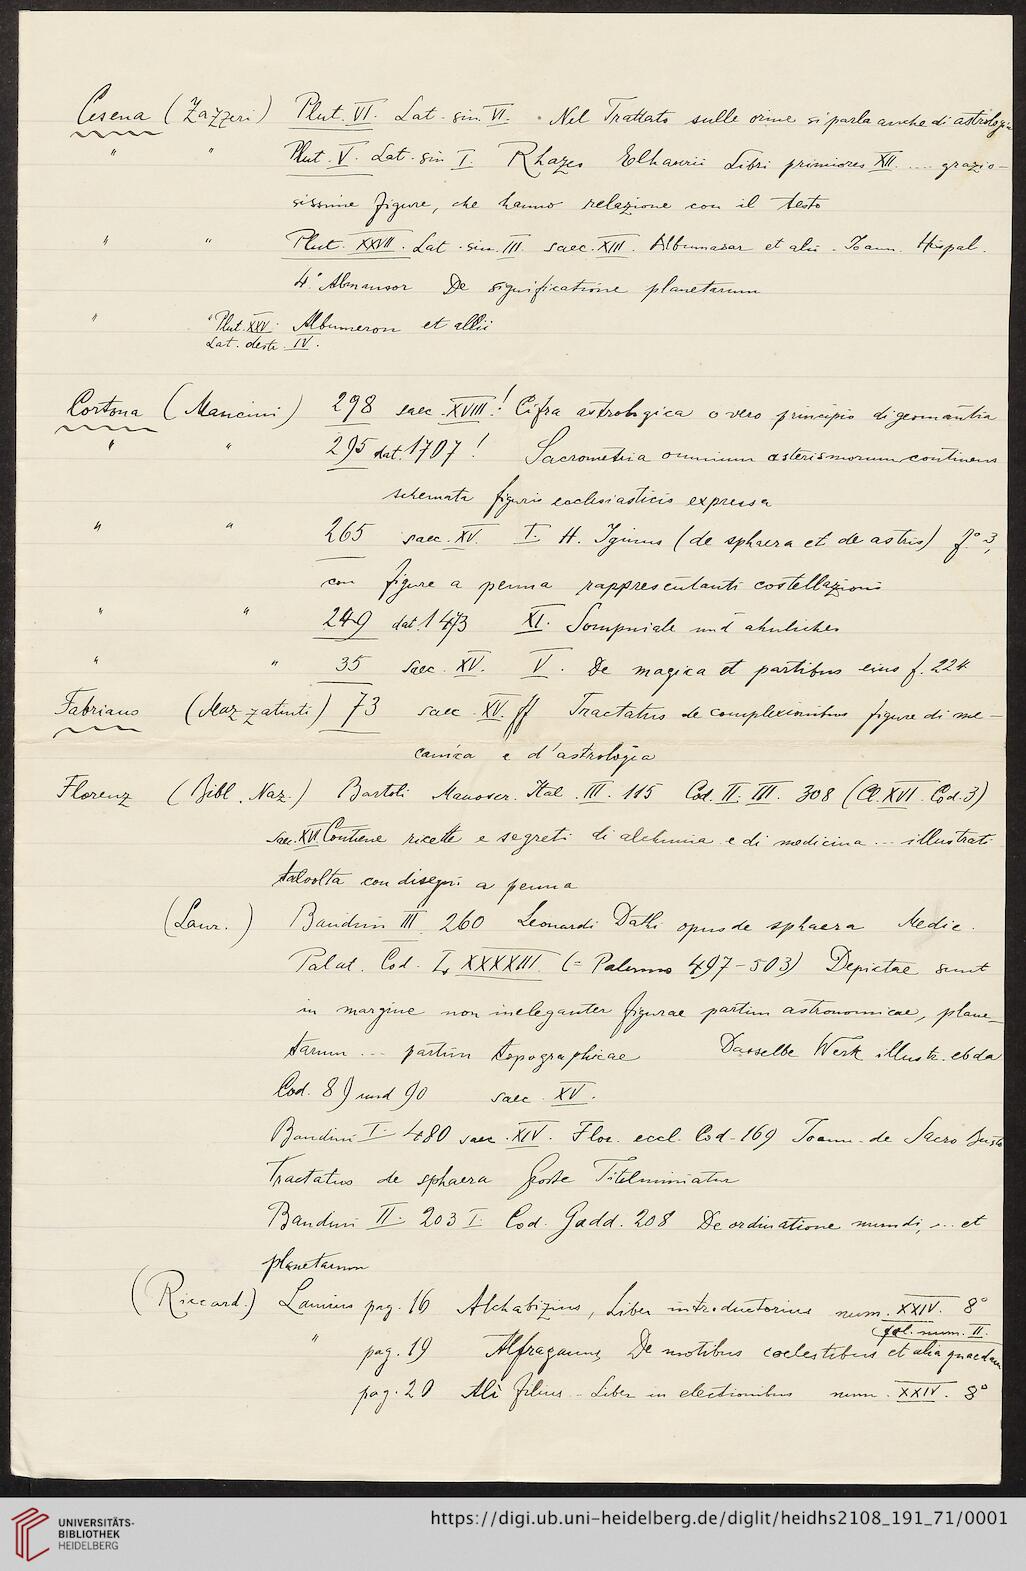 Cesena (Zazzeri) Plut. VI. Lat. sin. VI. Nel Trattato sulle orine si parla anche di astrologia
" " Plut. V. Lat. sin I. Rhazes Elhavrii Libri primiores XII. .... grazio-
sissime figure, che hanno relazione con il testo
" " Plut. XXVII. Lat. sin. III. saec. XIII. Albumasar et alii. Joann. Hispal.
4.° Almansor De significatione planetarum
" " Plut. XXV. Albumeron et allii
Lat. destr. IV.
Cortona (Mancini) 298 saec. XVIII.! Cifra astrologica o vero principio di geomantia
" " 295 dat. 1707! Sacrometria omnium asterismorum continens
schemata figuris ecclesiasticis expressa
" " 265 saec. XV. I. H. Iginus (de sphaera et de astris) f.° 3,
con figure a penna rappresentanti costellazioni
" " 249 dat. 1473 XI. Sompniale und ähnliches
" " 35 saec. XV. V. De magica et partibus eius f. 224
Fabriano (Mazzatinti) 73 saec. XV. ff Tractatus de complexionibus figure di me-
canica e d'astrologia
Florenz (Bibl. Naz.) Bartoli Manoscr. Ital. III. 115 Cod. II. III. 308 (Cl. XVI. Cod. 3)
saec. XVI Contiene ricette e segreti di alchimia e di medicina ... illustrati
talvolta con disegni a penna
(Laur.) Bandini III. 260 Leonardi Dathi opus de sphaera Medic.
Palat. Cod. L, XXXXIII. (= Palermo 497-503) Depictae sunt
in margine non ineleganter figurae partim astronomicae, plane-
tarum ... partim topographicae Dasselbe Werk illustr. ebda
Cod. 89 und 90 saec. XV.
Bandini I. 480 saec. XIV. Flor. eccl. Cod. 169 Joann. de Sacro Busto
Tractatus de sphaera Große Titelminiatur
Bandini II. 203 I. Cod. Gadd. 208 De ordinatione mundi, ... et
planetarum
(Riccard.) Lamius pag. 16 Alchabizius, Liber introductorius num. XXIV. 8°
fol. num. II.
" pag. 19 Alfraganus De motibus coelestibus et alia quaedam
pag. 20 Ali filius .. Liber in electionibus num. XXIV. 8°
UNIVERSITÄTS-
BIBLIOTHEK
HEIDELBERG
https://digi.ub.uni-heidelberg.de/diglit/heidhs2108_191_71/0001